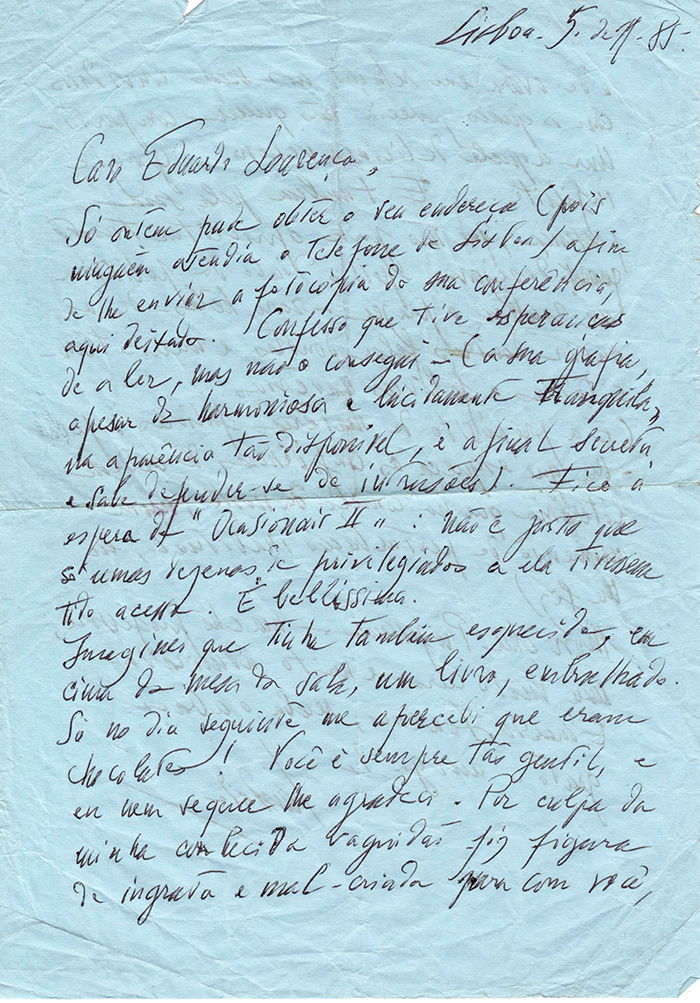 Lisboa. 5. de II. 85.
Caro Eduardo Lourenço,
Só ontem pude obter o seu endereço (pois
ninguém atendia o telefone de Lisboa) afim
de lhe enviar a fotocópia da sua conferência,
aqui deixado. Confesso que tive esperanças
de a ler, mas não o consegui – (a sua grafia,
apesar de harmoniosa e lucidamente tranquila,
na aparência tão disponível, é afinal secreta
e sabe defender-se de intrusões). Fico à
espera de "Ocasionais II". Não é justo que
só umas dezenas de privilegiados a ela tivessem
tido acesso. É bellíssima.
Imagines que tinha também esquecido, em
cima da mesa da sala, um livro, embrulhado.
Só no dia seguinte me apercebi que eram
chocolates! Você é sempre tão gentil, e
eu nem sequer lhe agradeci. Por culpa da
minha conhecida vaguidão fiz figura
de ingrata e mal-criada para com você,